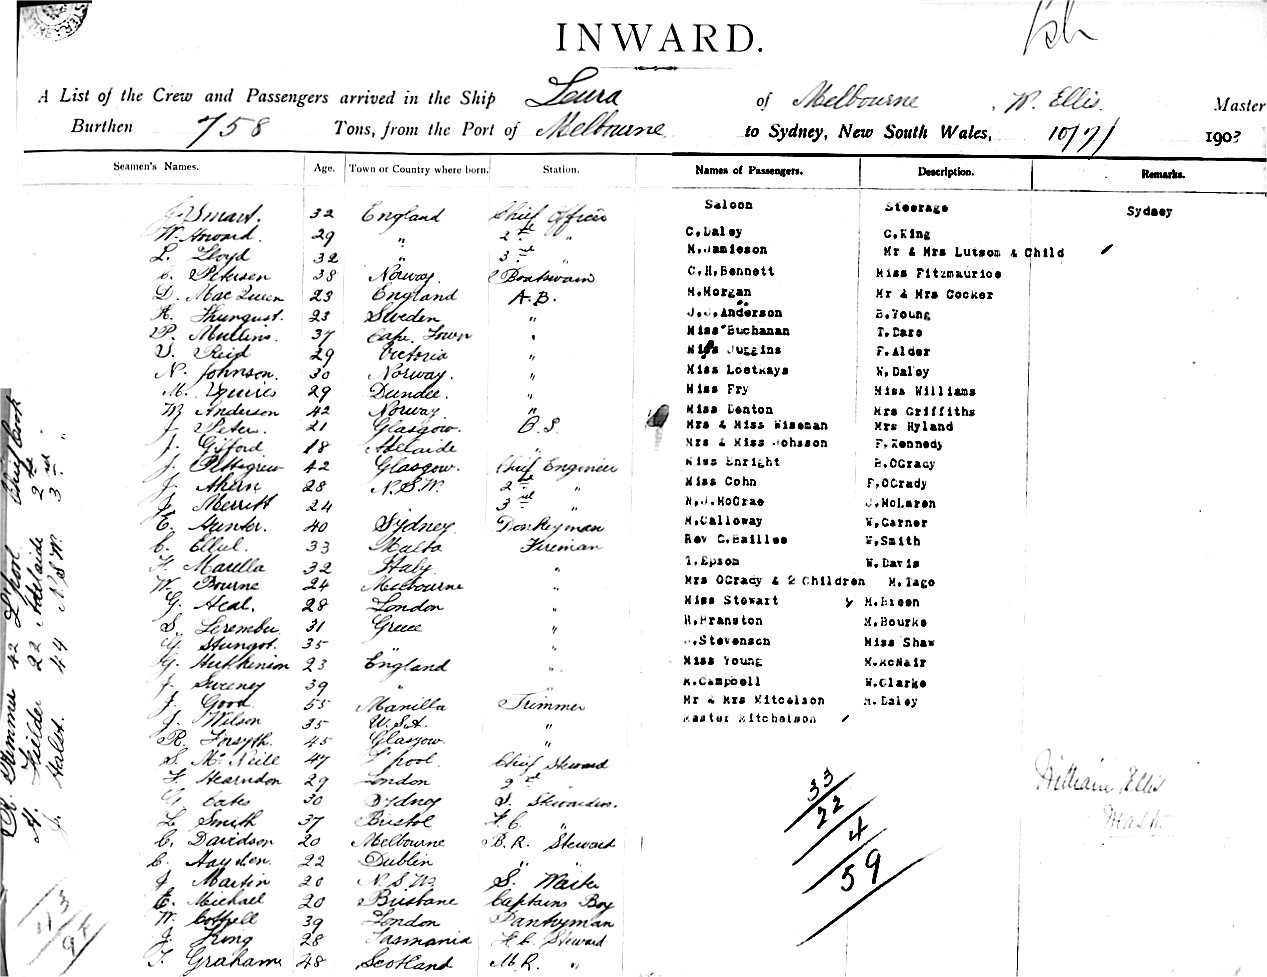 INWARD.
A List of the Crew and Passengers arrived in the Ship Leura of Melbourne , W. Ellis. Master
Burthen 758 Tons, from the Port of Melbourne to Sydney, New South Wales, 10/7/ 1903
Seamen's Names. Age. Town or Country where born. Station. Names of Passengers. Description. Remarks.
J. Smart. 32 England Chief Officer Saloon Steerage Sydney
W. Howard. 29 " 2nd " C.Daley C.King
L. Lloyd 32 " 3rd " M.Jamieson Mr & Mrs Lutsom & Child
C. Petersen 38 Norway. Boatswain C.H.Bennett Miss Fitzmaurice
D. MacQueen 23 England A.B. M.Morgan Mr & Mrs Cocker
A. 23 Sweden " J.J.Anderson B.Young
P. Mullins. 37 Cape Town " Miss Buchanan T.Dare
S. Reid 29 Victoria " Miss Juggins F.Alder
N. Johnson. 30 Norway. " Miss Loetkays W.Daley
M. Squires 29 Dundee. " Miss Fry Miss Williams
W. Anderson 42 Norway. " Miss Denton Mrs Griffiths
J. Peter. 21 Glasgow. O.S. Mrs & Miss Wiseman Mrs Hyland
J. Gifford 18 Adelaide " Mrs & Miss Johnson F.Kennedy
J. Pettigrew 42 Glasgow. Chief Engineer Miss Enright B.OGrady
J. Ahern 28 N.S.W. 2nd " Miss Cohn F.OGrady
J. Merritt 24 " 3rd " N.J.McCrae J.McLaren
E. Hunter. 40 Sydney Donkeyman M.Calloway W.Garner
C. Ellul. 33 Malta Fireman Rev C.Baillee W.Smith
F. Marella 32 Italy " T.Epsom W.Davis
W. Bourne 24 Melbourne " Mrs OGrady & 2 Children M.Tago
G. Heal. 28 London " Miss Stewart M.Breen
S. 31 Greece " H.Franston M.Bourke
G. 35 " " J.Stevenson Miss Shaw
G. Hutkinson 23 England " Miss Young M.McNair
J. Sweeney 39 " " M.Campbell W.Clarke
J. Good 55 Manilla Trimmer Mr & Mrs Mitchelson M.Daley
J. Wilson 35 U.S.A. " Master Mitchelson
R. Forsyth. 45 Glasgow "
S. McNeill 47 L'pool Chief Steward
F. Hearndon 29 London 2nd "
G. Oates 30 Sydney S. Stewardess.
L. Smith 37 Bristol F.C. "
C. Davidson 20 Melbourne B.R. Steward
C. Hayden. 22 Dublin " "
J. Martin 20 N.S.W. S. Waiter
E. Michael 20 Brisbane Captains Boy
W. Cottrell 39 London Pantryman
J. King 28 Tasmania F.C. Steward
T. Graham 48 Scotland M.R. "
33
22
4
59
William Ellis
Mast
R. 42 L'pool Chief Cook
H. Fielder 22 Adelaide 2nd "
J. Halst. 44 N.S.W. 3rd "
43
94